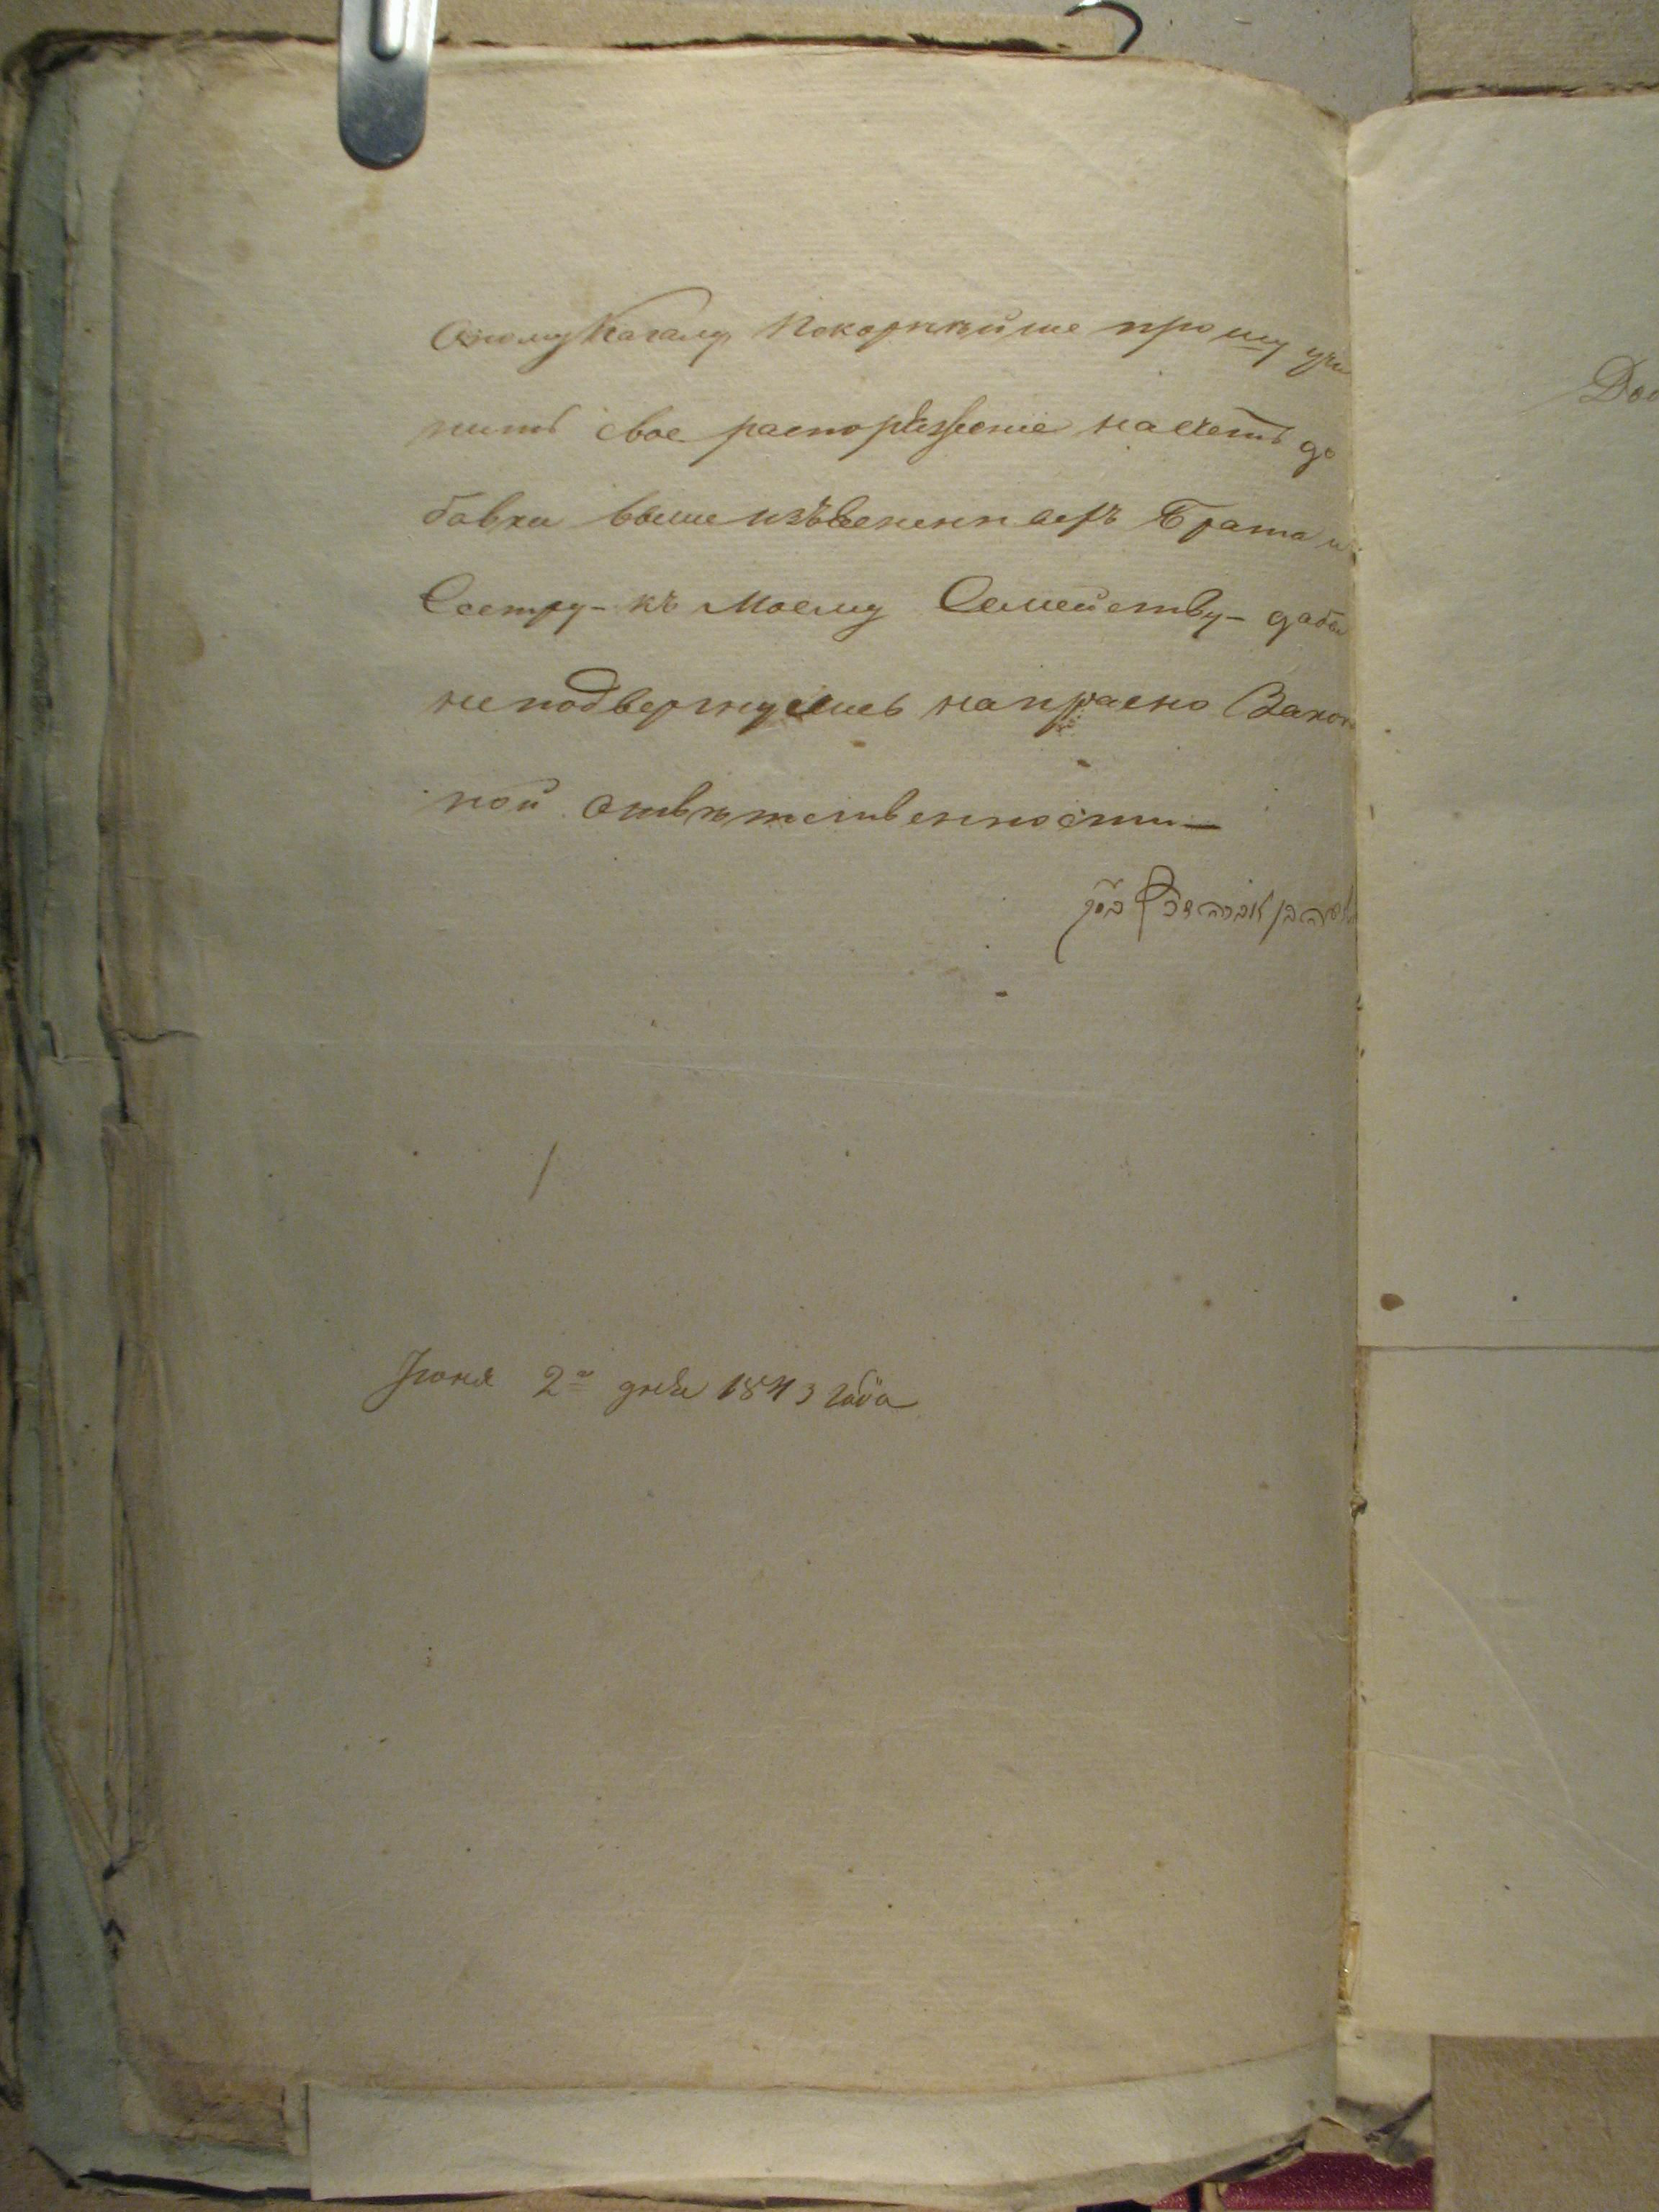 Оному Кагалу покорнѣйше прошу учи
нить свое распорѣжение насчетъ до
бавки выше Брата и
Сестру - къ Моему Семейству - дабы
неподвергнулись напрасно Закон
ной отвѣтственности —
Июня 2го дня 1843 года